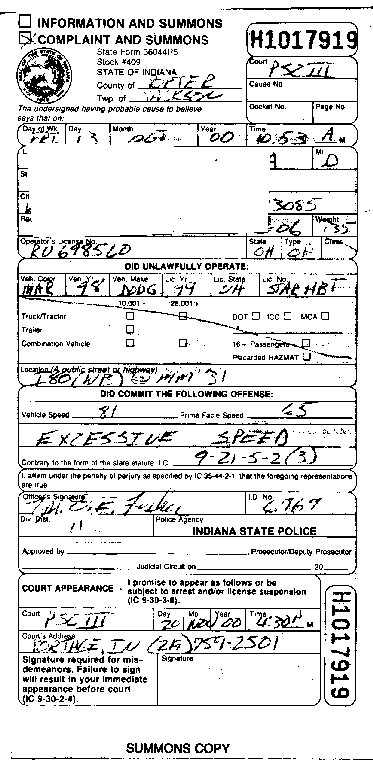 INFORMATION AND SUMMONS
COMPLAINT AND SUMMONS
H1017919
State Form 36044R5
Stock #409
STATE OF INDIANA
County of PORTER
Twp of JACKSON
Court PSC III
Cause No
Docket No. Page No
The undersigned having probable cause to believe
says that on:
Day of Wk Day Month Year Time
FRI 13 OCT 00 10:53 A M
MI
D
3085
Weight
06 135
Operator's License No. State Type Class
RU698560 OH OP
DID UNLAWFULLY OPERATE:
Veh. Color Veh. Yr Veh. Make Lic. Yr Lic. State Lic. No.
MAR 98 DODG 99 OH
10,001 + 26,001 +
Truck/Tractor DOT ICC MCA
Trailer
Combination Vehicle 16+ Passengers
Placarded HAZMAT
Location (A public street or highway)
I80 (WB) @ MM 31
DID COMMIT THE FOLLOWING OFFENSE:
Vehicle Speed 81 Prime Facie Speed 65
EXCESSIVE SPEED
Contrary to the form of the state statute I.C. 9-21-5-2(3)
I affirm under the penalty of perjury as specified by IC 35-44-2-1 that the foregoing representations
are true
Officer's Signature I.D. No
Div. Dist. 11 Police Agency
INDIANA STATE POLICE
Approved by , Prosecutor/Deputy Prosecutor
Judicial Circuit on 20
COURT APPEARANCE - I promise to appear as follows or be
subject to arrest and/or license suspension
(IC 9-30-3-8).
Court Day Mo Year Time
PSC III 20 NOV 00 4:30 P M
Court's Address
PORTAGE, IN (219) 759-2501
Signature required for mis-
demeanors. Failure to sign
will result in your immediate
appearance before court
(IC 9-30-2-4).
Signature
H1017919
SUMMONS COPY